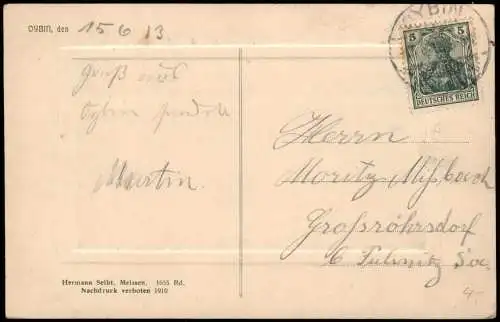 OYBIN, den 15 6 13
Gruß aus
Oybin sendet
Martin.
Hermann Seibt, Meissen. 1655 Rd.
Nachdruck verboten 1910
OYBIN
5 5
DEUTSCHES REICH
Herrn
Moritz Mißbach
Großröhrsdorf
Pulsnitz Sa.
4.-